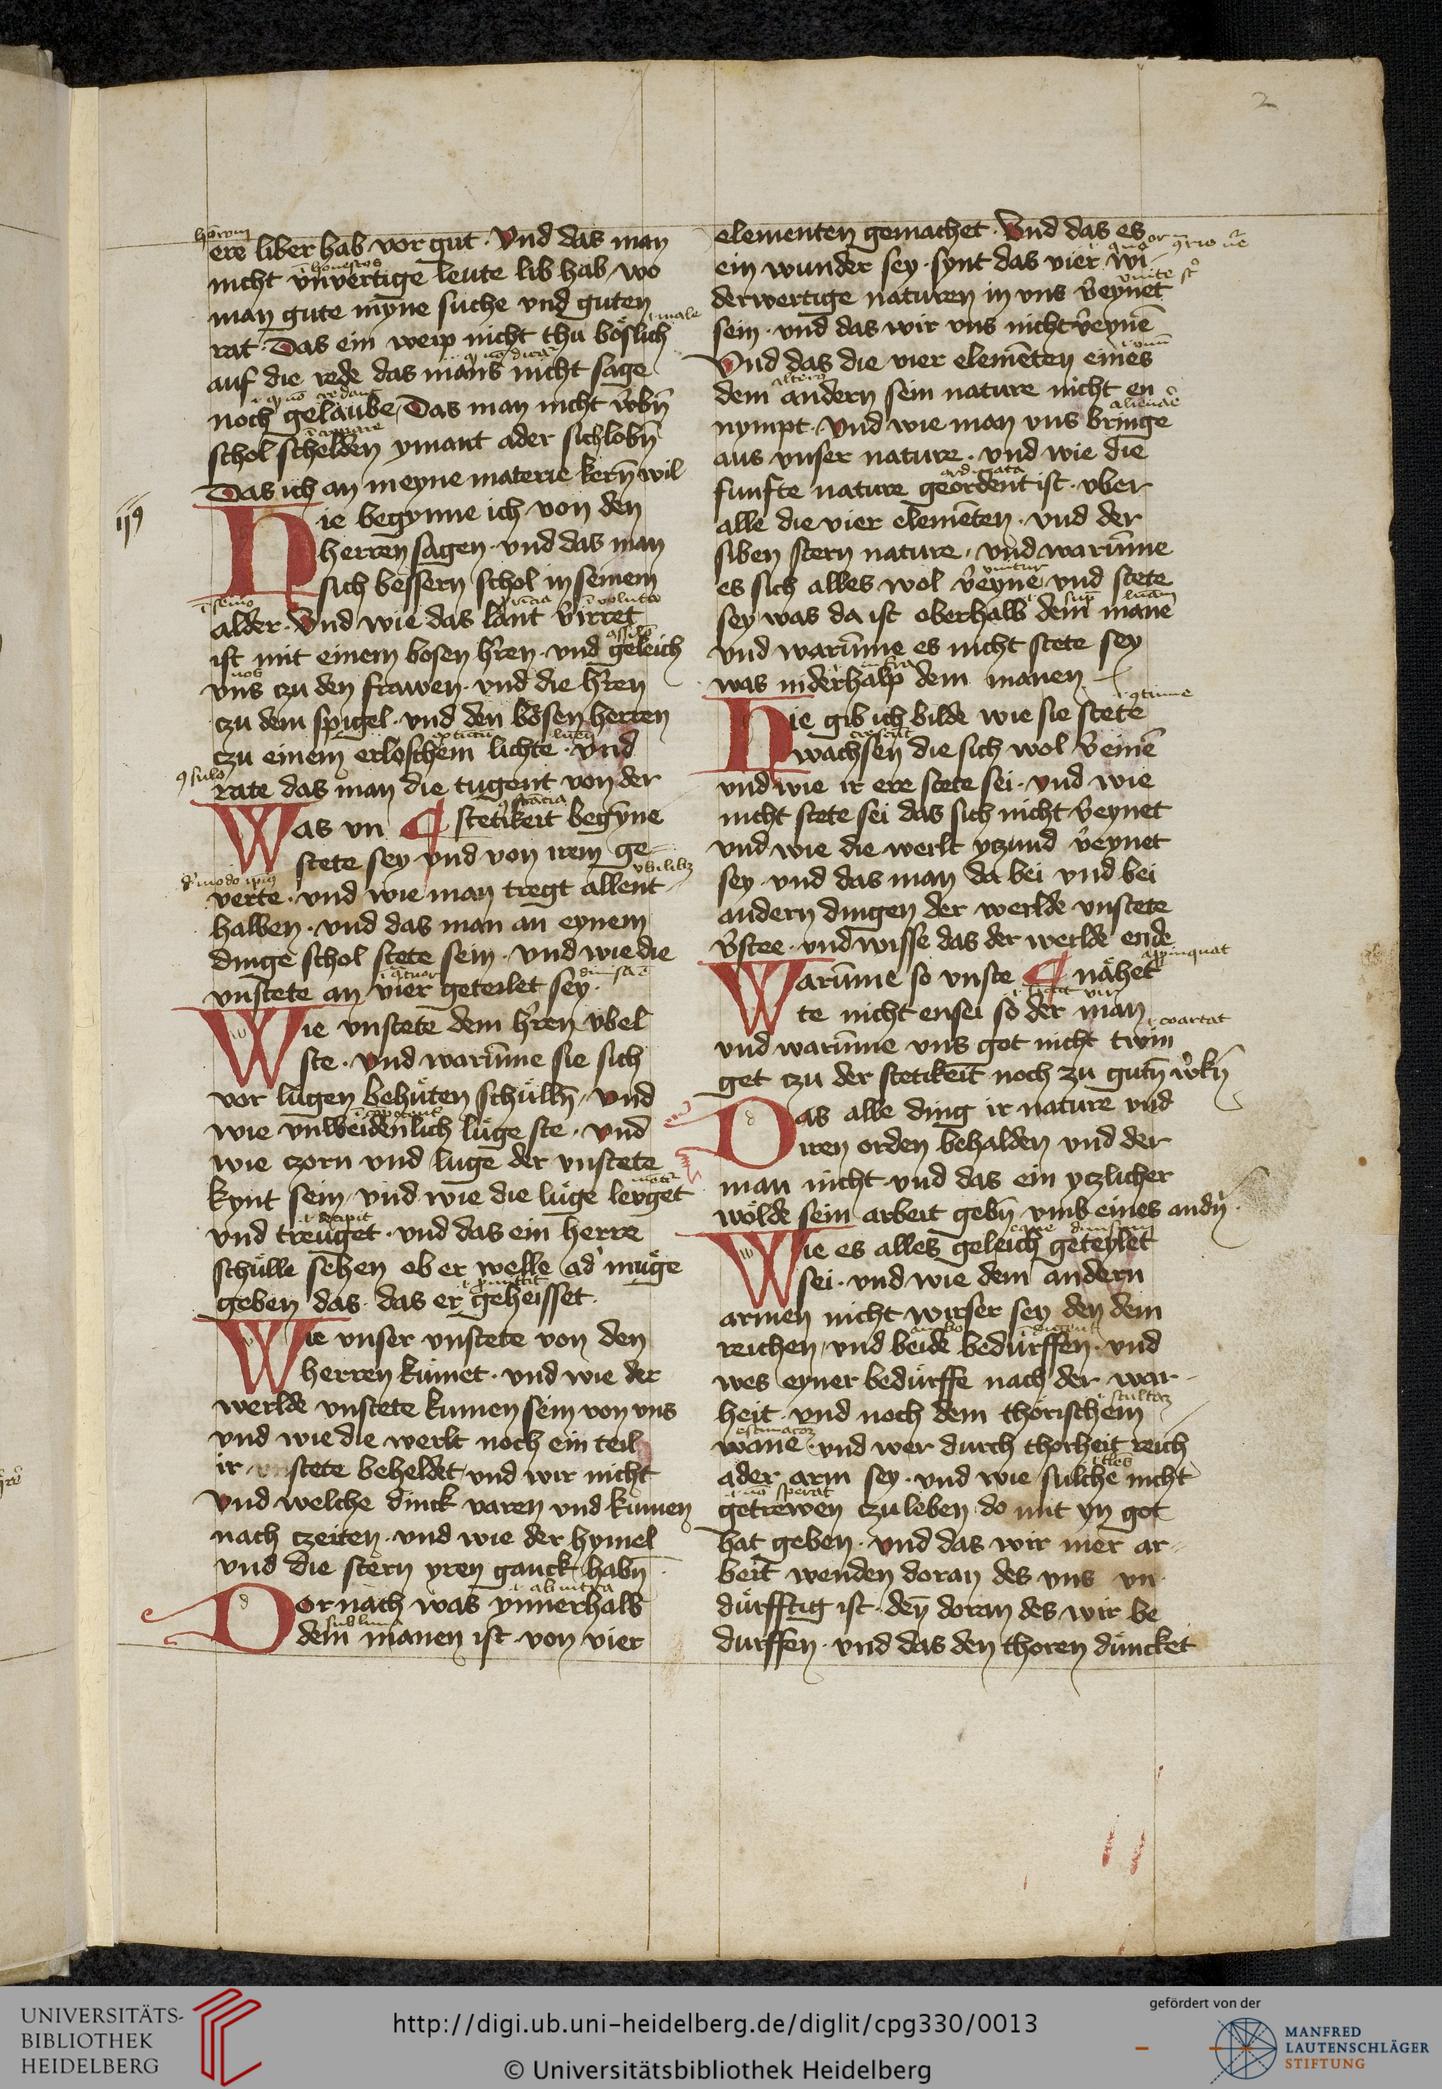 2
ere liber hab vor gut · Vnd das man
nicht vnvertige leute lib hab / wo
man gute myne suche vnd guten
rat · Das ein weip nicht thu böslich
auf die rede das mans nicht sage
noch gelaube / Das man nicht
schol schelden ymant ader sich lobn̄
Das ich an meyne materie kern̄ wil
Hie begynne ich von den
herren sagen · vnd das man
sich bessern schol in seinem
alder · Vnd wie das lant v̄irret
ist mit einem bosen h̄ren · vnd geleich
vns czu den frawen · vnd die h̄ren
czu dem spigel · vnd den bösen herren
czu einem erloschem lichte · vnd
rate das man die tugent von der
Was vn ¶ stetikeit begyne
stete sey vnd von irem ge-
verte · vnd wie man tregt allent-
halben · vnd das man an eynem
dinge schol stete sein · vnd wie die
vnstete an vier geteilet sey ·
Wie vnstete dem h̄ren vbel
ste · vnd warūme sie sich
vor lugen behüten schülln̄ / vnd
wie vnweidenlich lüge ste · vnd
wie czorn vnd luge der vnstete
kynt sein / vnd wie die lüge levget
vnd treuget · vnd das ein herre
schülle sehen ob er welle ad' müge
geben das · das er geheisset ·
Wie vnser vnstete von den
herren kumet · vnd wie der
werlde vnstete kumen sein von vns
vnd wie die werlt noch ein teil
ir vnstete beheldet / vnd wir nicht
Vnd welche dinck varen vnd kumen
nach czeiten · vnd wie der hymel
vnd die stern yren ganck habn̄
Dornach was ynnerhalb
dem manen ist · von vier
elementen gemachet · Vnd das es
ein wunder sey · synt das vier wi-
derwertige naturen in vns v̄eynet
sein · vnd das wir vns nicht v̄eynē
Vnd das die vier elemēten eines
dem andern sein nature nicht en
nympt · Vnd wie man vns bringe
aus vnser nature · vnd wie die
funfte nature geordent ist · vber
alle die vier elemēten · vnd der
siben stern nature / vnd warūme
es sich alles wol v̄eyne / vnd stete
sey / was da ist oberhalb dem mane
vnd warūme es nicht stete sey
was inderhalp dem manen
Hie gib ich bilde wie sie stete
wachsen die sich wol v̄einē
vnd wie ir ere stete sei · vnd wie
nicht stete sei das sich nicht v̄eynet
vnd wie die werlt yczund v̄eynet
sey · vnd das man da bei vnd bei
andern dingen der werlde vnstete
v̄stee · vnd wisse das der werlde ende
Warūme so vnste ¶ nähet
te nicht ensei so der man
vnd warūme vns got nicht twin
get czu der stetikeit noch zu gutn̄
Das alle ding ir nature vnd
iren orden behalden vnd der
man nicht · vnd das ein yczlicher
wölde sein arbeit gebn̄ vmb eines
Wie es alles geleich geteylet
sei · vnd wie dem andern
armen nicht wirser sey den dem
reichen / vnd beide bedürffen · vnd
wes eyner bedürffe nach der war-
heit · vnd noch dem thörischem
wane · vnd wer durch thorheit reich
ader arm sey · vnd wie sulche nicht
getrewen czu leben do mit yn got
hat geben · vnd das wir mer ar-
beit wenden doran des vns vn
dürfftig ist · den̄ doran des wir be
durffen · vnd das den thoren düncket
UNIVERSITÄTS-
BIBLIOTHEK
HEIDELBERG
http://digi.ub.uni-heidelberg.de/diglit/cpg330/0013
© Universitätsbibliothek Heidelberg
gefördert von der
MANFRED
LAUTENSCHLÄGER
STIFTUNG